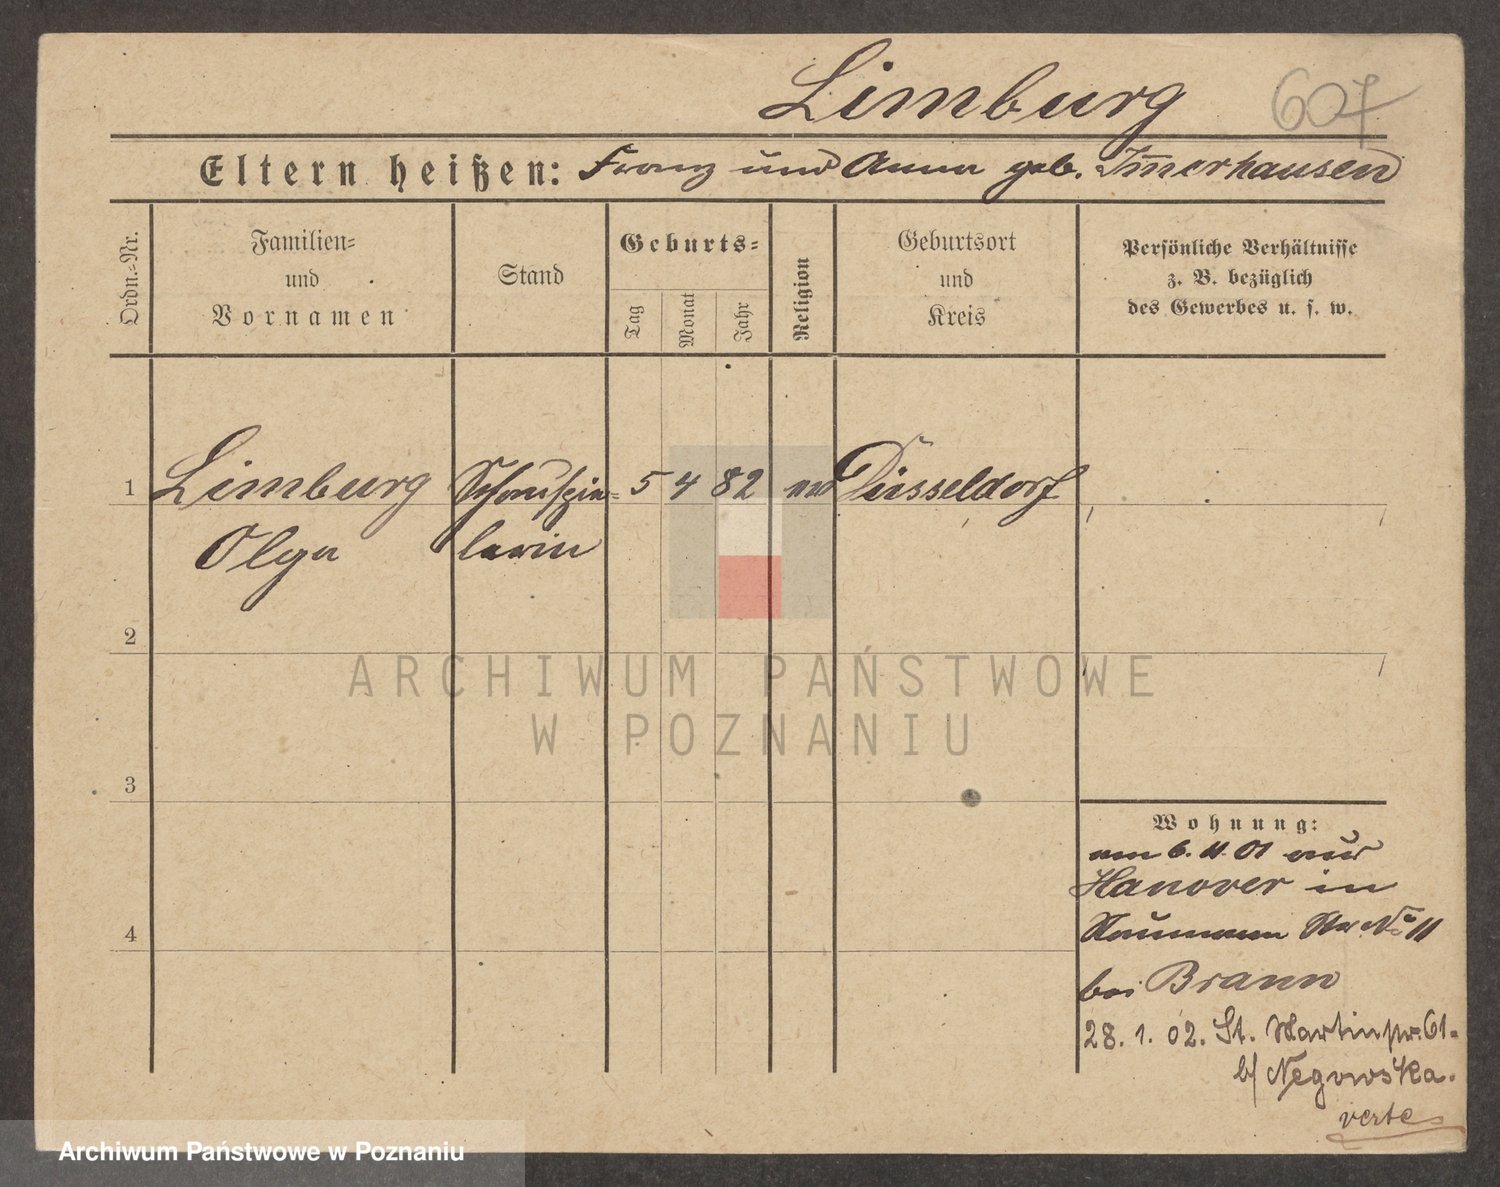 Limburg 607
Eltern heißen: Franz und Anna geb. Immerhausen
Ordn.-Nr.
Familien-
und
Vornamen
Stand
Geburts-
Tag
Monat
Jahr
Religion
Geburtsort
und
Kreis
Persönliche Verhältnisse
z. B. bezüglich
des Gewerbes u. s. w.
1 Limburg Schauspie- 5 4 82 Düsseldorf
Olga lerin
2
3
4
Wohnung:
am 6. 11. 01 aus
Hanover in
Naumann Str No 11
bei Brann
28. 1. 02. St. Martinstr. 61.
b/ Negowska.
verte
ARCHIWUM PAŃSTWOWE
W POZNANIU
Archiwum Państwowe w Poznaniu